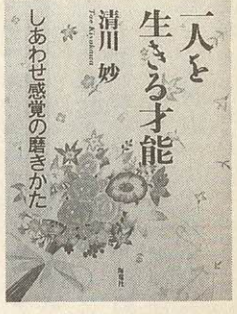 一人を
生きる才能
清川 妙
Tae Kiyokawa
しあわせ感覚の磨きかた
海竜社